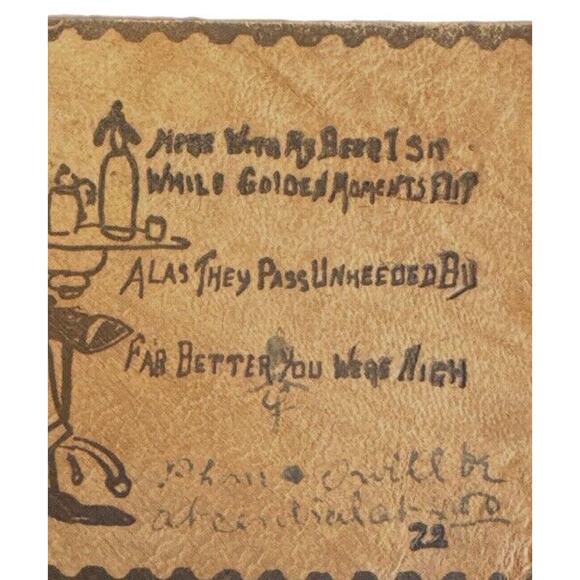 HERE WITH MY BEER I SIT
WHILE GOLDEN MOMENTS FLIT
ALAS THEY PASS UNHEEDED BY
FAR BETTER YOU WERE NIGH
4
I will be
at
22